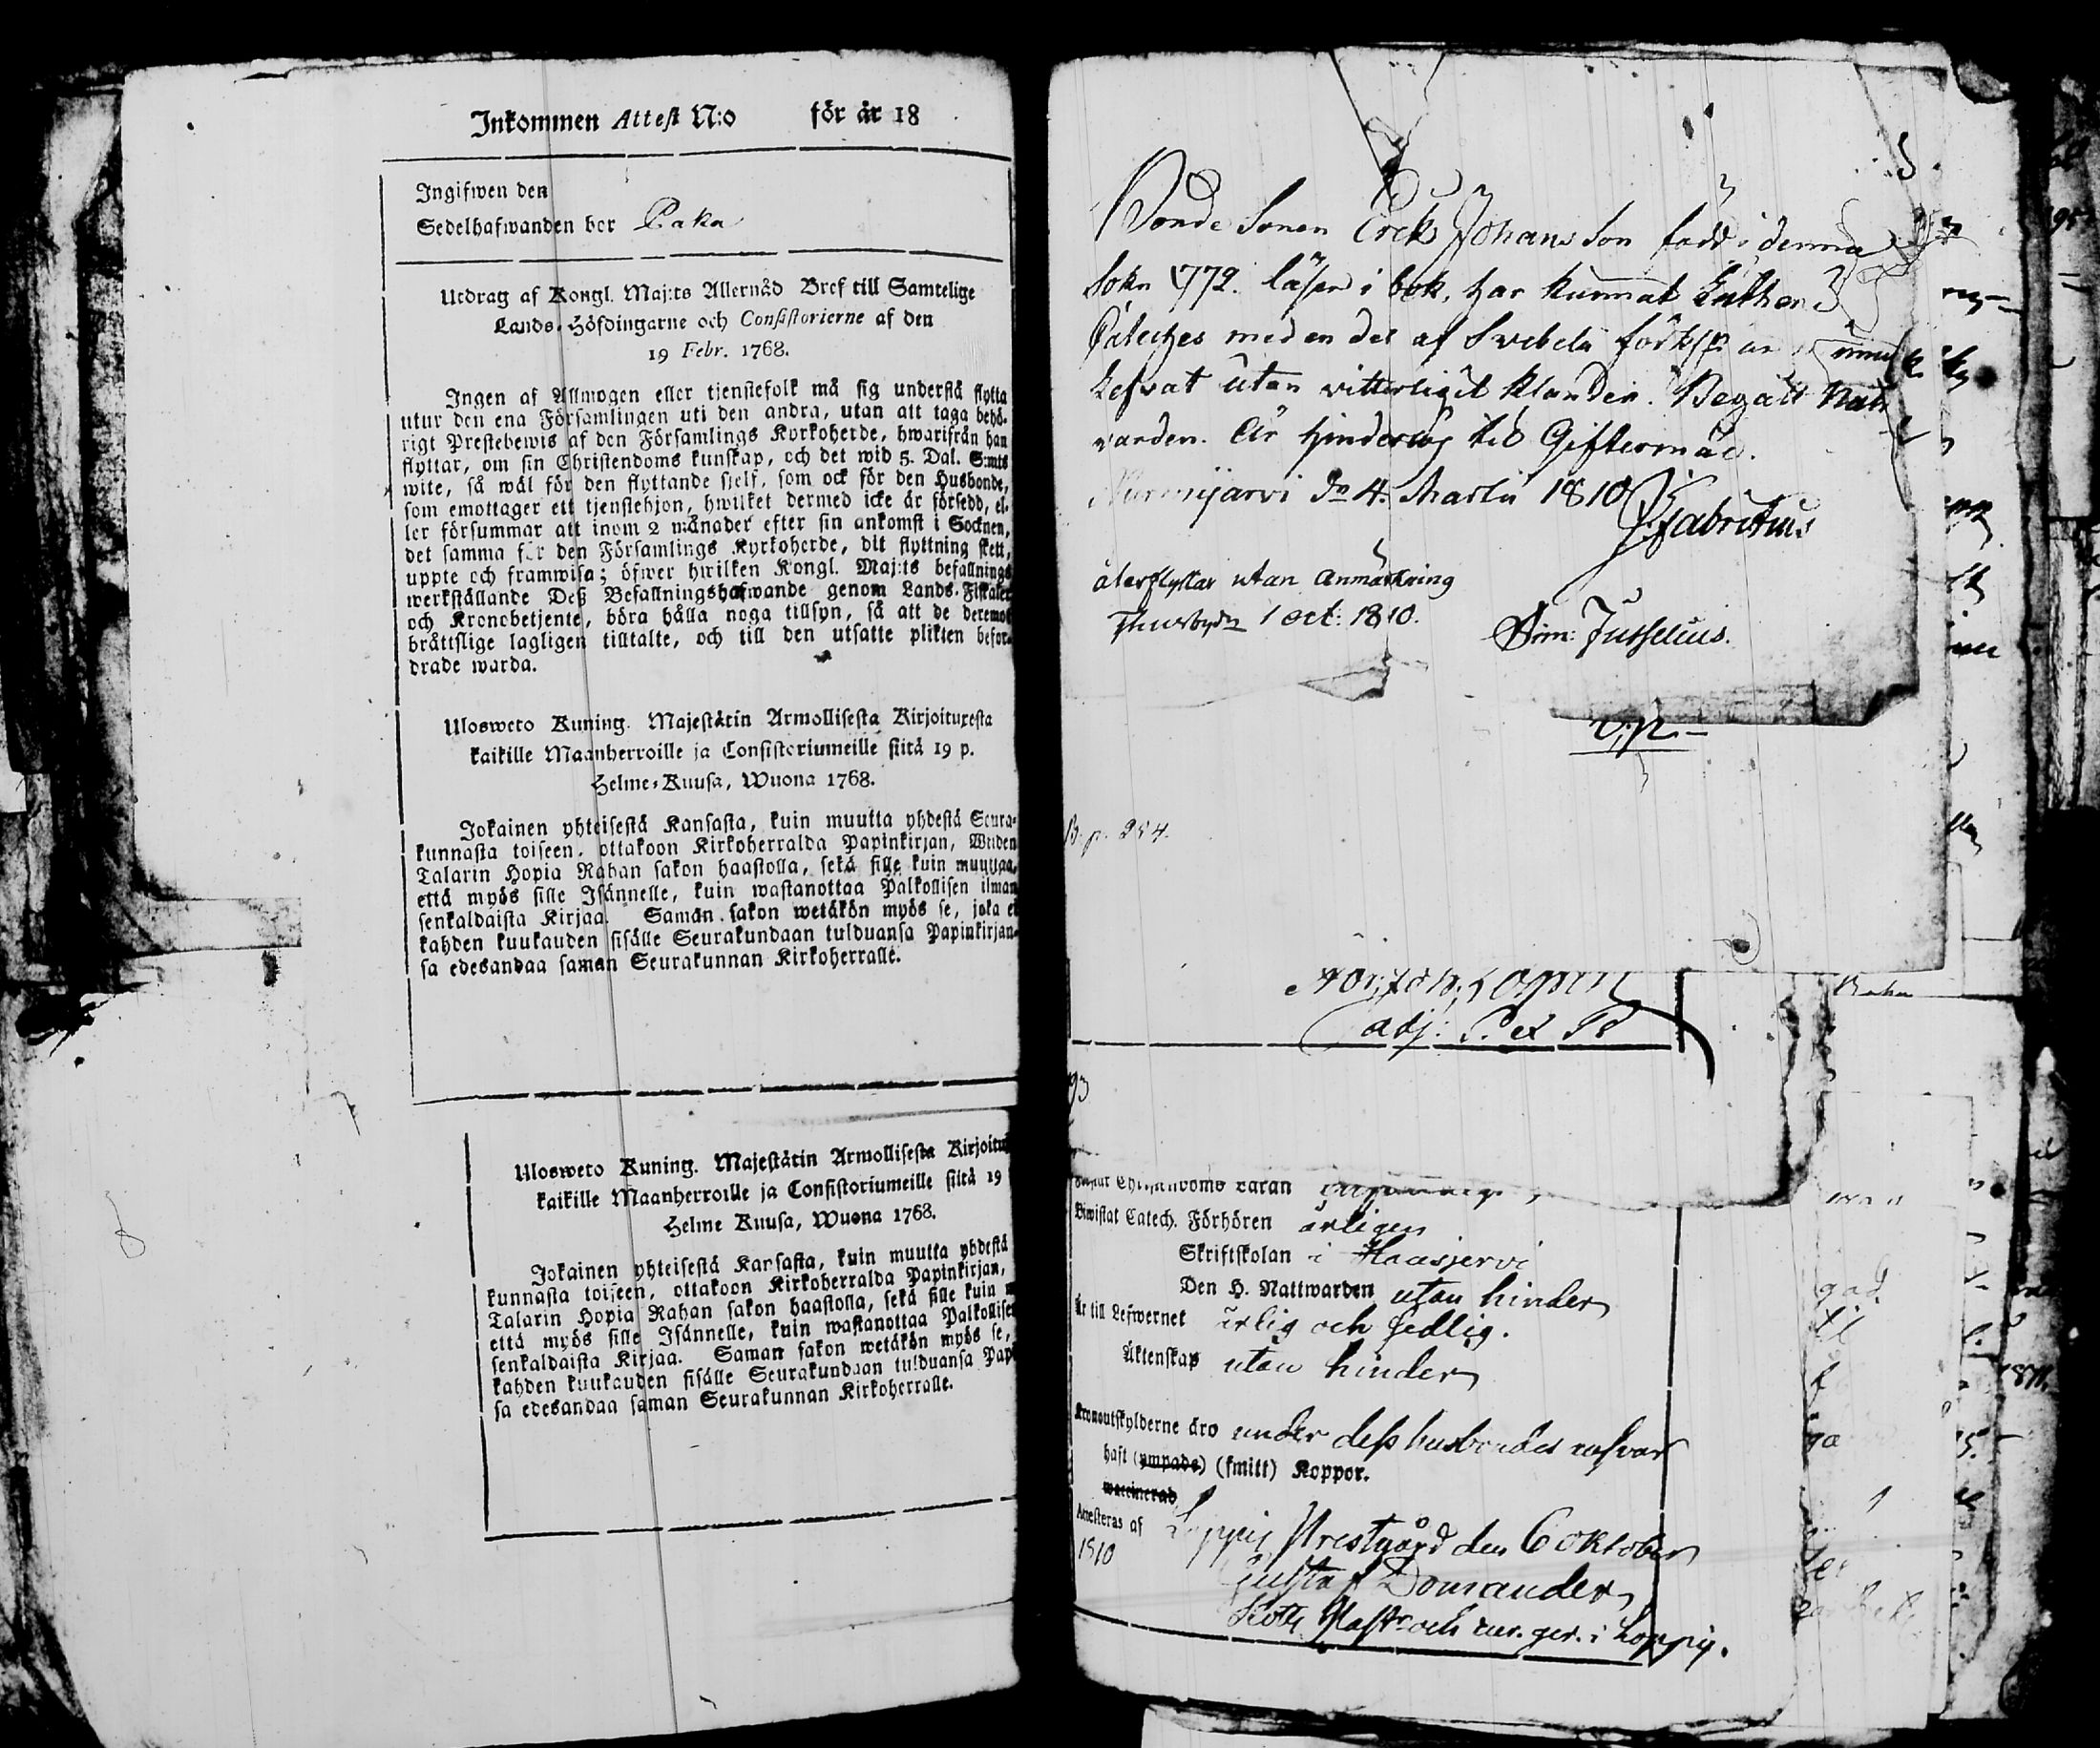 Inkommen Attest N:o för år 18
Ingifwen den
Sedelhafwanden bor Paka
Utdrag af Kongl. Maj:ts Allernåd Bref till Samtelige
Lands-Höfdingarne och Consistorierne af den
19 Febr. 1768.
Ingen af Allmogen eller tjenstefolk må sig understå flytta
utur den ena Församlingen uti den andra, utan att taga behö-
rigt Prestebewis af den Församlings Kyrkoherde, hwarifrån han
flyttar, om sin Christendoms kunskap, och det wid 5. Dal. S:mts
wite, så wäl för den flyttande sjelf, som ock för den Husbonde,
som emottager ett tjenstehjon, hwilket dermed icke är försedd, el-
ler försummar att inom 2 månader efter sin ankomst i Socknen,
det samma för den Församlings Kyrkoherde, dit flyttning skett,
uppte och framwisa; öfwer hwilken Kongl. Maj:ts befallnings
werkställande Deß Befallningshafwande genom Lands-Fiskaler
och Kronobetjente, böra hålla noga tillsyn, så att de deremot
bråttslige lagligen tilltalte, och till den utsatte plikten befor-
drade warda.
Ulosweto Kuning. Majestätin Armollisesta Kirjoituxesta
kaikille Maanherroille ja Consistoriumeille siitä 19 p.
Helme-Kuusa, Wuona 1768.
Jokainen yhteisestä Kansasta, kuin muutta yhdestä Seura-
kunnasta toiseen, ottakoon Kirkoherralda Papinkirjan, Wiiden
Talarin Hopia Rahan sakon haastolla, sekä sille kuin muuttaa,
että myös sille Isännelle, kuin wastanottaa Palkollisen ilman
senkaldaista Kirjaa. Saman sakon wetäkön myös se, joka ei
kahden kuukauden sisälle Seurakundaan tulduansa Papinkirjan-
sa edesandaa saman Seurakunnan Kirkoherralle.
Ulosweto Kuning. Majestätin Armollisesta Kirjoitu
kaikille Maanherroille ja Consistoriumeille siitä 19
Helme Kuusa, Wuona 1768.
Jokainen yhteisestä Kansasta, kuin muutta yhdestä
kunnasta toiseen, ottakoon Kirkoherralda Papinkirjan,
Talarin Hopia Rahan sakon haastolla, sekä sille kuin m
että myös sille Isännelle, kuin wastanottaa Palkollise
senkaldaista Kirjaa. Saman sakon wetäkön myös se,
kahden kuukauden sisälle Seurakundaan tulduansa Papi
sa edesandaa saman Seurakunnan Kirkoherralle.
Bonde Sonen Erek Johans Son född i denna
Sokn 1772. läser i bok, har kunnat Luther
Cateches med en del af Svebelii
Lefvat utan vitterligit klander. Begått Natt
varden. Är hinderlös til Giftermål.
Nurmijärvi d. 4. Martii 1810 Fabritius
återflyttar utan anmärkning
Thusby d. 1 oct: 1810. Sim: Jusselius.
v.p.
B. p. 254.
adj: P. et P
93
Christendoms Läran
Biwistat Catech. Förhören årligen
Skriftskolan i Haasjervi
Den H. Nattwarden utan hinder
Är till Lefwernet ärlig och sedlig.
Äktenskap utan hinder
Kronoutskylderne äro under dess husbondes ansvar
haft (ympade) (smitt) Koppor.
waccinerad
Attesteras af Loppis Prestgård den 6 oktober
1810
Gustaf Domander
Past och i Loppis.